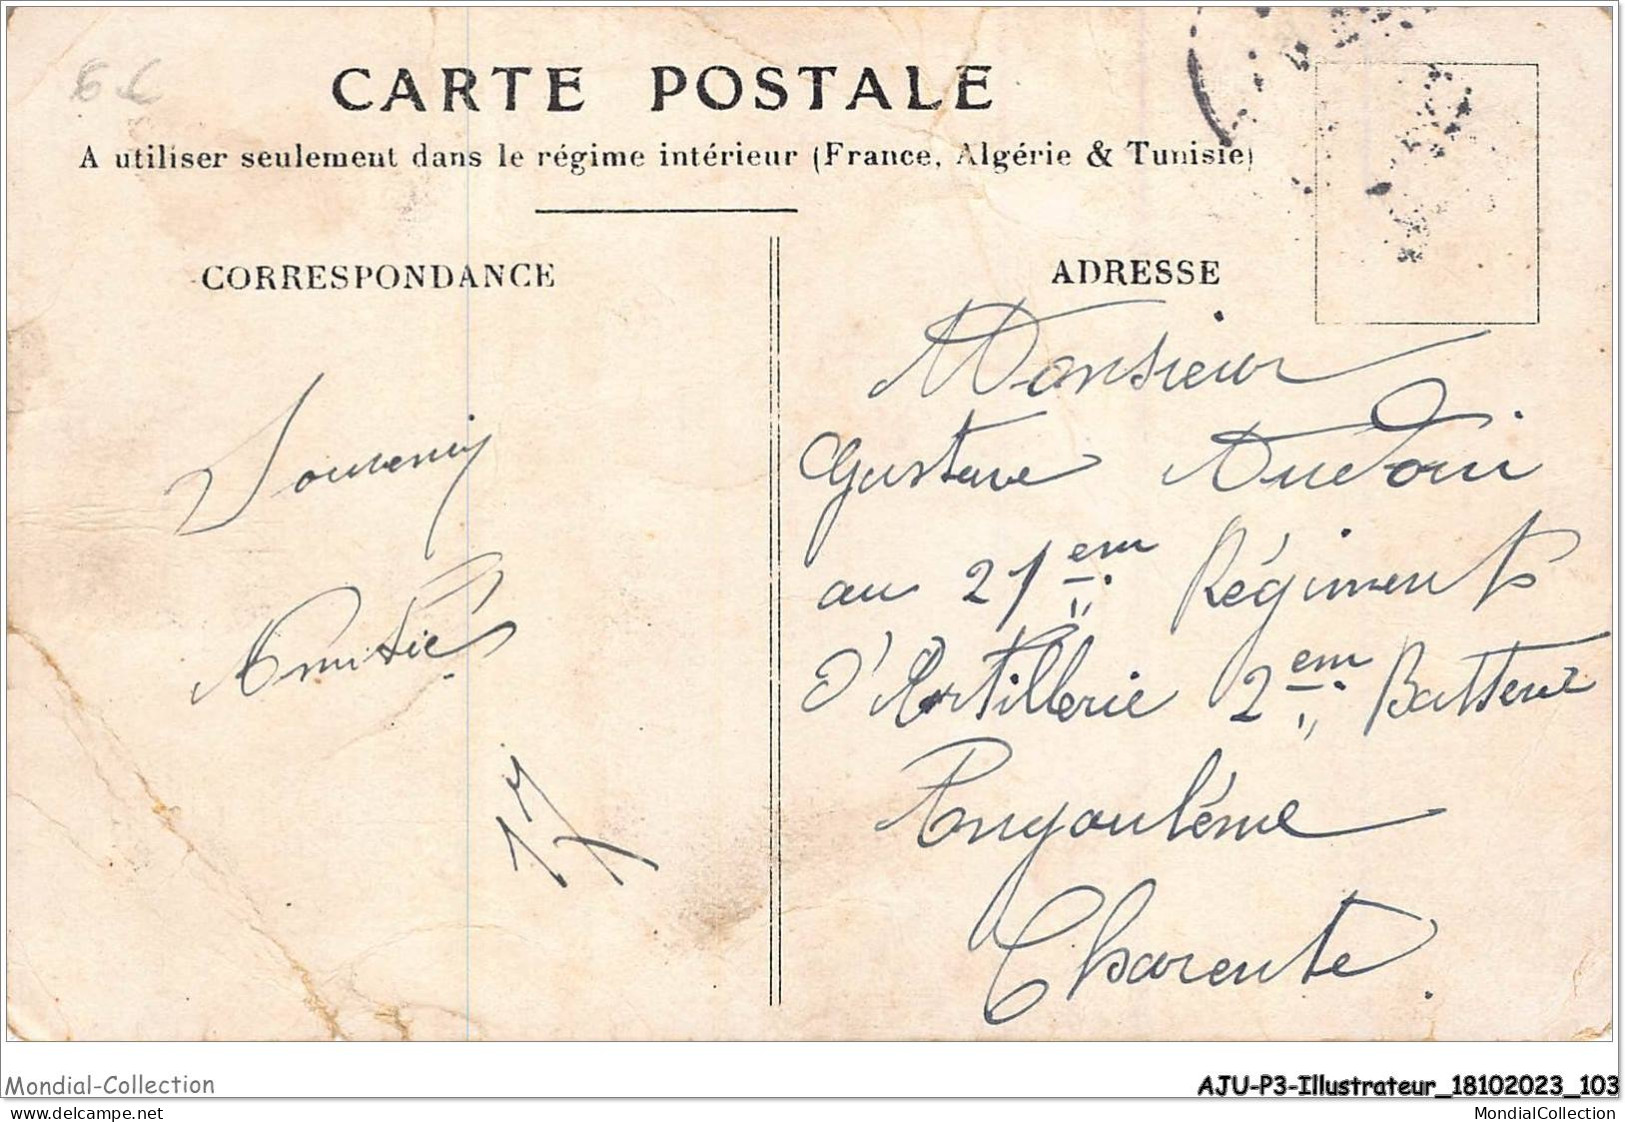 CARTE POSTALE
A utiliser seulement dans le régime intérieur (France, Algérie & Tunisie)
CORRESPONDANCE
Souvenir
Amitié
17
ADRESSE
Monsieur
Gustave Audoui
au 21em Régiments
d'Artillerie 2em Batterie
Angoulême
Charente.
Mondial-Collection
AJU-P3-Illustrateur_18102023_103
www.delcampe.net
MondialCollection